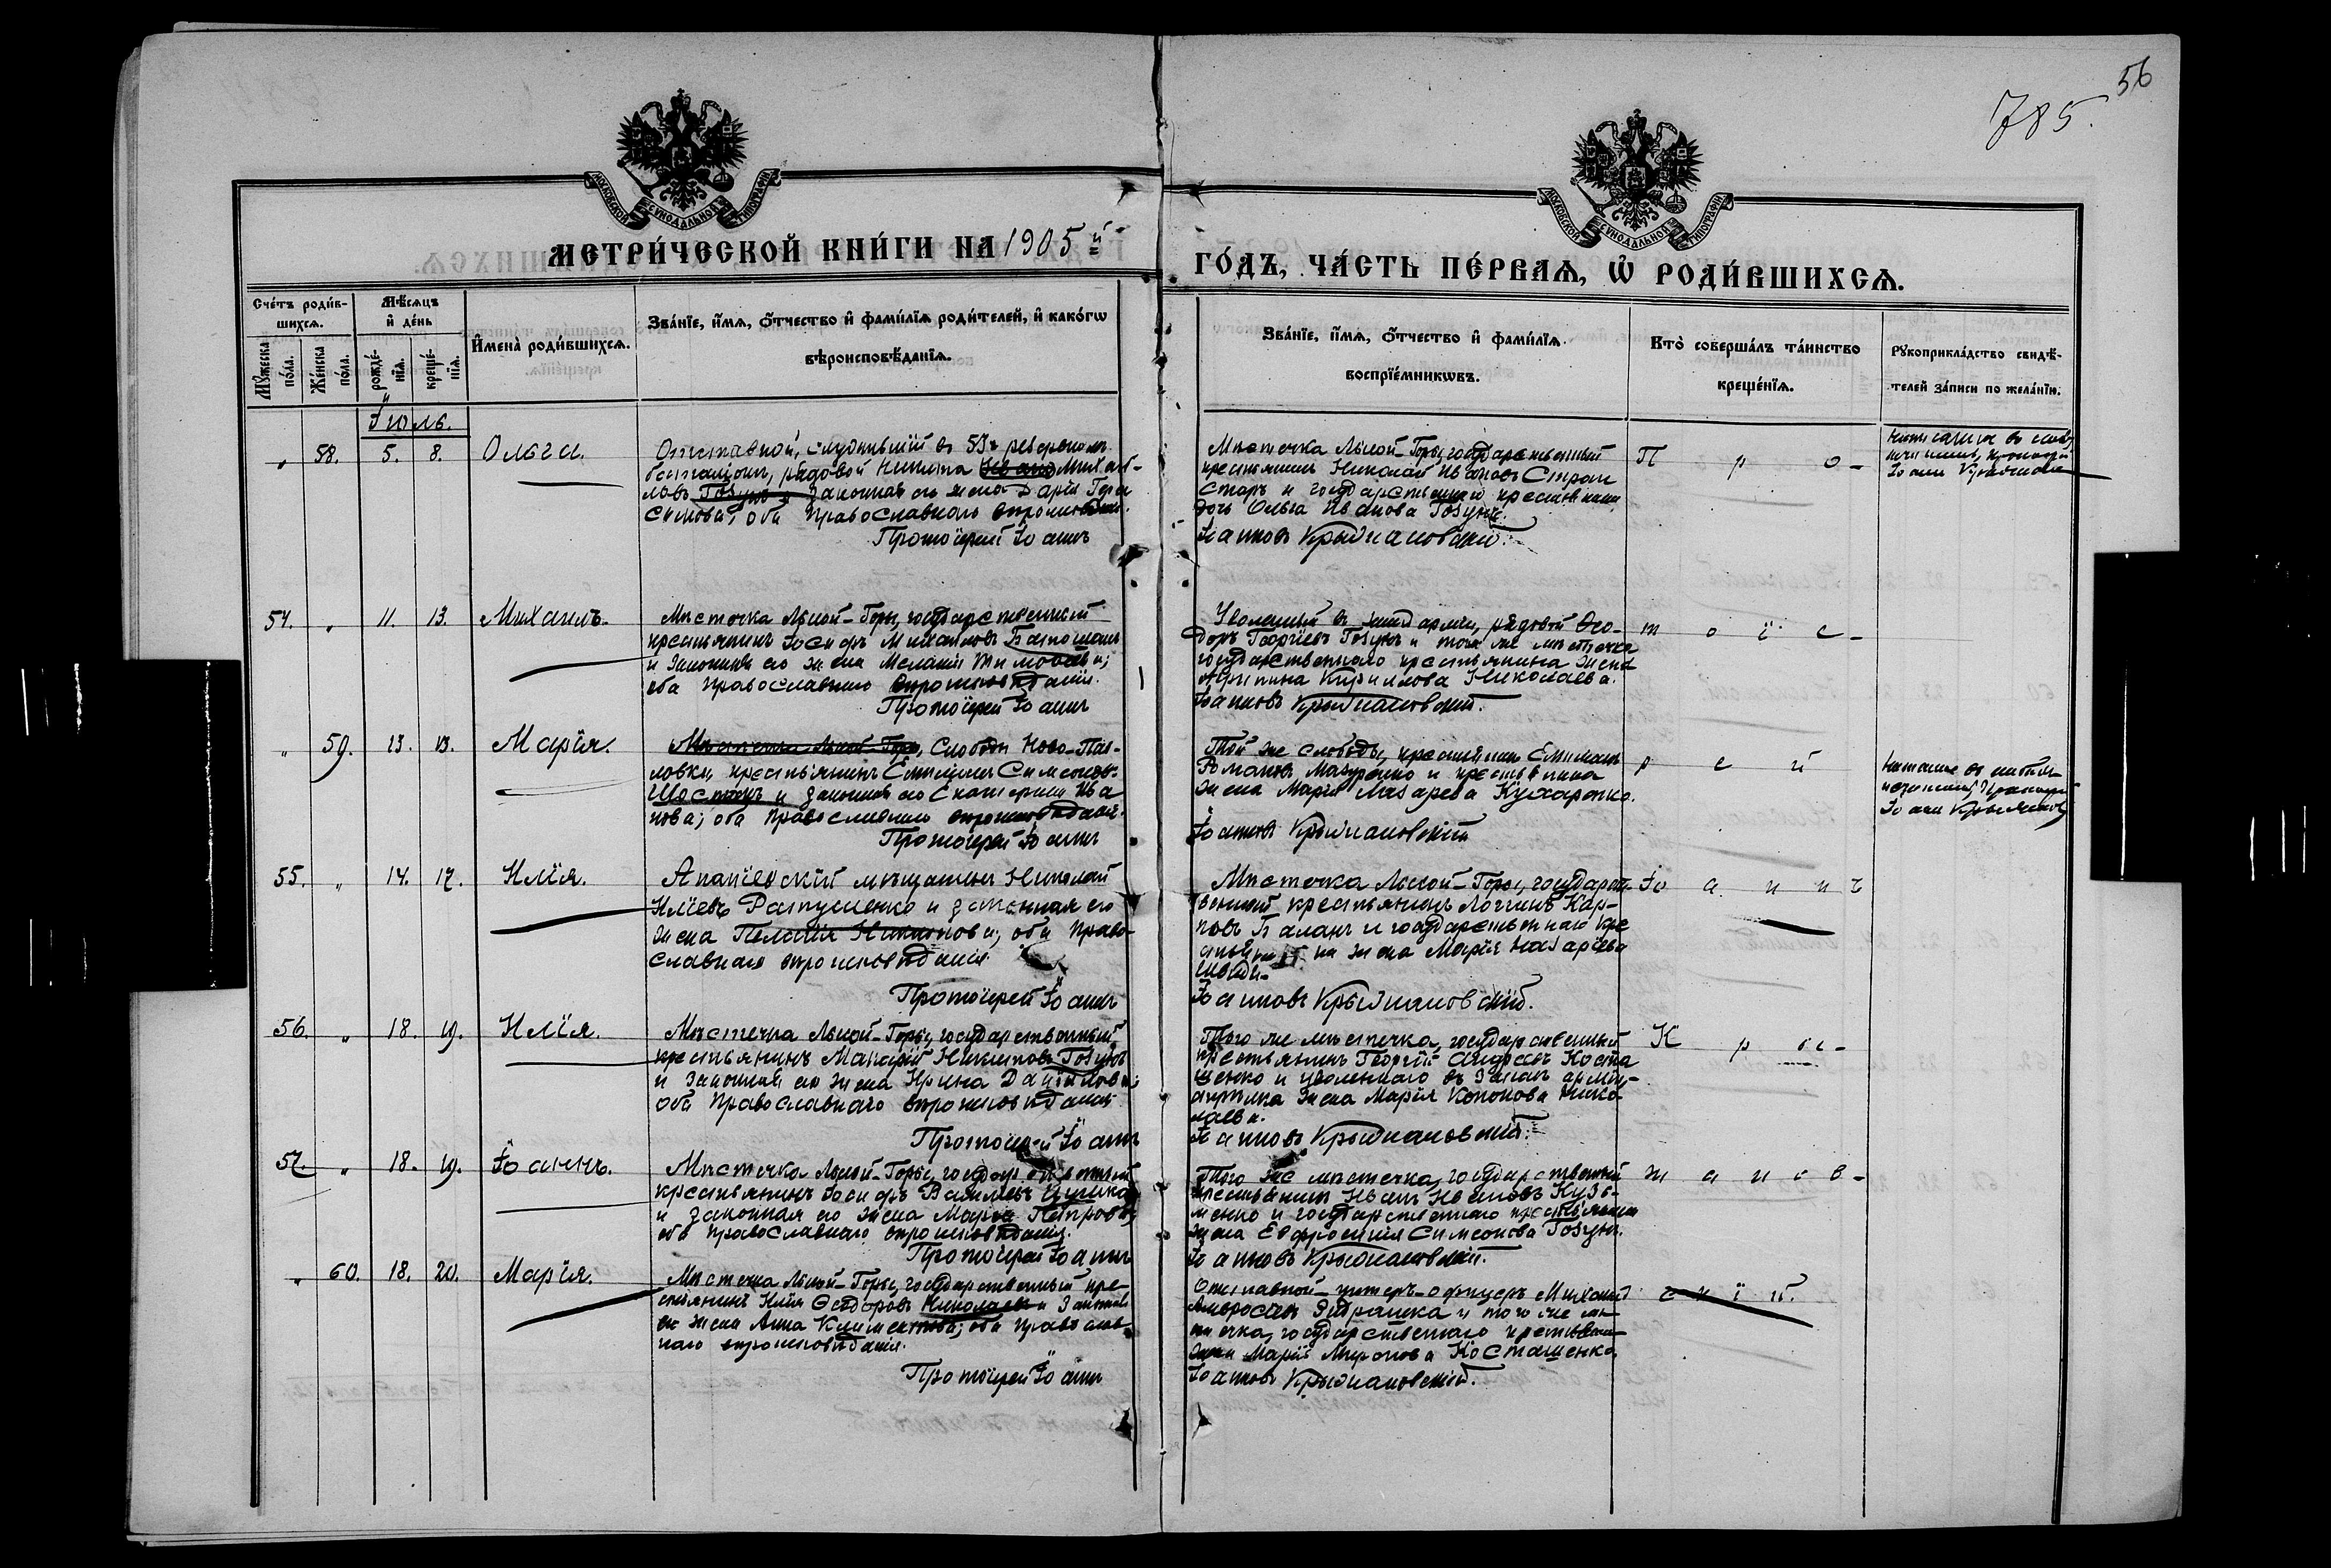 56
785.
МОСКОВСКОЙ СУНОДАЛЬНОЙ ТИПОГРАФІИ
МОСКОВСКОЙ СУНОДАЛЬНОЙ ТИПОГРАФІИ
МЕТРИ́ЧЕСКОЙ КНИ́ГИ НА 1905й
ГО́ДЪ, ЧА́СТЬ ПЕ́РВАѦ, Ѡ҆ РОДИ́ВШИХСѦ.
Сче́тъ роди́в-
шихсѧ.
Мꙋ́жеска по́ла.
Же́нска по́ла.
Мѣ́сѧцъ
и҆ де́нь
рожде́-нїѧ.
креще́-нїѧ.
И҆мена̀ роди́вшихсѧ.
Зва́нїе, и҆́мѧ, ѻ҆́тчество и҆ фами́лїѧ роди́телей, и҆ како́гѡ
вѣроисповѣ́данїѧ.
Зва́нїе, и҆́мѧ, ѻ҆́тчество и҆ фами́лїѧ
воспрїе́мникѡвъ.
Кто̀ соверша́лъ та́инство
креще́нїѧ.
Рꙋкоприкла́дство свидѣ́-
телей за́писи по жела́нїю.
Іюль.
" 58. 5. 8. Ольга.
Отставной, служившій въ 53м резервномъ
баталіонѣ, рядовой Никита Михаи-
ловъ Гозунъ и законная его жена Дарія Гера
симова; оба православнаго вѣроисповѣданія.
Протоіерей Іоаннъ
Мѣстечка Лысой-Горы, государственный
крестьянинъ Николай Ивановъ
и государственнаго крестьянина
дочь Ольга Иванова Гозунъ.
Іоанновъ Крыжановскій.
П р о-
54. " 11. 13. Михаилъ.
Мѣстечка Лысой-Горы, государственный
крестьянинъ Іосифъ Михаиловъ
и законная его жена Меланія Тимофеева;
оба православнаго вѣроисповѣданія.
Протоіерей Іоаннъ
Уволенный въ запасъ арміи, рядовой Ѳео-
доръ Георгіевъ Гозунъ и того же мѣстечка
государственнаго крестьянина жена
Кириллова Николаева.
Іоанновъ Крыжановскій.
т о і е-
" 59. 13. 13. Марія.
Мѣстечка Лысой-Горы, Слободы Ново-Пав-
ловки, крестьянинъ Емиліанъ Симеоновъ
Шостакъ и законная его Екатерина Ива
нова; оба православнаго вѣроисповѣданія.
Протоіерей Іоаннъ
Той же слободы, крестьянинъ Емиліанъ
Романовъ Мазуренко и крестьянина
жена Марія Лазарева Кухаренко.
Іоанновъ Крыжановскій
р е й
55. " 14. 17. Илія.
Ананіевскій мѣщанинъ Николай
Иліевъ Распущенко и законная его
жена Пелагія Никитова; оба право-
славнаго вѣроисповѣданія.
Протоіерей Іоаннъ
Мѣстечка Лысой-Горы, государст-
венный крестьянинъ Логгинъ Кар-
повъ Баланъ и государственнаго кре
стьянина жена Марія Назаріева
Іоанновъ Крыжановскій.
Іо а н н ъ
56. " 18. 19. Илія.
Мѣстечка Лысой-Горы, государственный
крестьянинъ Макарій Никитовъ Гозунъ
и законная его жена Ирина Даніилова;
оба православнаго вѣроисповѣданія.
Протоіерей Іоаннъ
Того же мѣстечка, государственный
крестьянинъ Георгій Андреевъ Коста
шенко и уволеннаго въ запасъ арміи
жена Марія Кононова Нико-
лаева.
Іоанновъ Крыжановскій.
К р ы-
57. " 18. 19. Іоаннъ.
Мѣстечка Лысой-Горы, государственный
крестьянинъ Іосифъ Васильевъ
и законная его жена Марѳа Петрова;
оба православнаго вѣроисповѣданія.
Протоіерей Іоаннъ
Того же мѣстечка, государственный
крестьянинъ Иванъ Ивановъ Кузь-
менко и государственнаго крестьянина
жена Евфросинія Симеонова Гозунъ.
Іоанновъ Крыжановскій.
ж а н о в-
" 60. 18. 20. Марія.
Мѣстечка Лысой-Горы, государственный кре-
стьянинъ Илія Ѳеодоровъ Николаевъ и законная
его жена Анна Климентова; оба православ-
наго вѣроисповѣданія.
Протоіерей Іоаннъ
Отставной унтеръ-офицеръ Михаилъ
Амвросіевъ и того же мѣ-
стечка, государственнаго крестьянина
жена Марія Миронова Косташенко.
Іоанновъ Крыжановскій.
с к і й.